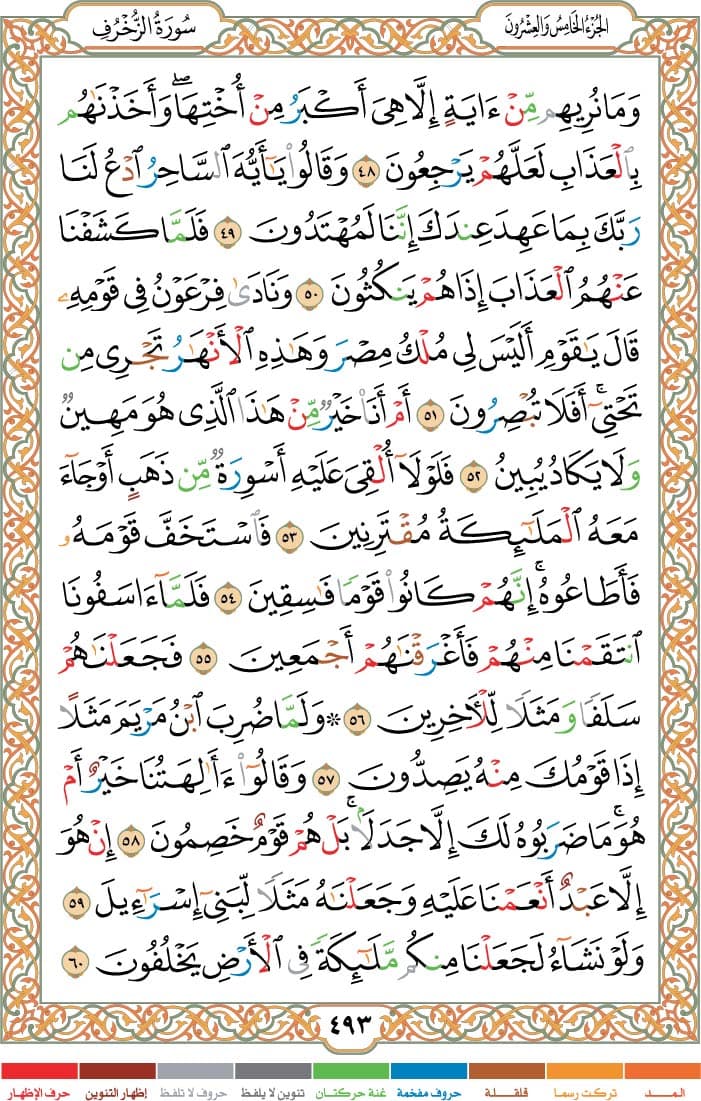 سُورَةُ الزُّخْرُفِ
الجُزْءُ الخَامِسُ وَالعِشْرُونَ
وَمَا نُرِيهِم مِّنْ ءَايَةٍ إِلَّا هِىَ أَكْبَرُ مِنْ أُخْتِهَاۖ وَأَخَذْنَٰهُم
بِٱلْعَذَابِ لَعَلَّهُمْ يَرْجِعُونَ ٤٨ وَقَالُوا۟ يَٰٓأَيُّهَ ٱلسَّاحِرُ ٱدْعُ لَنَا
رَبَّكَ بِمَا عَهِدَ عِندَكَ إِنَّنَا لَمُهْتَدُونَ ٤٩ فَلَمَّا كَشَفْنَا
عَنْهُمُ ٱلْعَذَابَ إِذَا هُمْ يَنكُثُونَ ٥٠ وَنَادَىٰ فِرْعَوْنُ فِى قَوْمِهِۦ
قَالَ يَٰقَوْمِ أَلَيْسَ لِى مُلْكُ مِصْرَ وَهَٰذِهِ ٱلْأَنْهَٰرُ تَجْرِى مِن
تَحْتِىٓۚ أَفَلَا تُبْصِرُونَ ٥١ أَمْ أَنَا۠ خَيْرٌ مِّنْ هَٰذَا ٱلَّذِى هُوَ مَهِينٌ
وَلَا يَكَادُ يُبِينُ ٥٢ فَلَوْلَآ أُلْقِىَ عَلَيْهِ أَسْوِرَةٌ مِّن ذَهَبٍ أَوْ جَآءَ
مَعَهُ ٱلْمَلَٰٓئِكَةُ مُقْتَرِنِينَ ٥٣ فَٱسْتَخَفَّ قَوْمَهُۥ
فَأَطَاعُوهُۚ إِنَّهُمْ كَانُوا۟ قَوْمًا فَٰسِقِينَ ٥٤ فَلَمَّآ ءَاسَفُونَا
ٱنتَقَمْنَا مِنْهُمْ فَأَغْرَقْنَٰهُمْ أَجْمَعِينَ ٥٥ فَجَعَلْنَٰهُمْ
سَلَفًا وَمَثَلًا لِّلْءَاخِرِينَ ٥٦ ۞ وَلَمَّا ضُرِبَ ٱبْنُ مَرْيَمَ مَثَلًا
إِذَا قَوْمُكَ مِنْهُ يَصِدُّونَ ٥٧ وَقَالُوٓا۟ ءَأَٰلِهَتُنَا خَيْرٌ أَمْ
هُوَۚ مَا ضَرَبُوهُ لَكَ إِلَّا جَدَلًۢاۚ بَلْ هُمْ قَوْمٌ خَصِمُونَ ٥٨ إِنْ هُوَ
إِلَّا عَبْدٌ أَنْعَمْنَا عَلَيْهِ وَجَعَلْنَٰهُ مَثَلًا لِّبَنِىٓ إِسْرَٰٓءِيلَ ٥٩
وَلَوْ نَشَآءُ لَجَعَلْنَا مِنكُم مَّلَٰٓئِكَةً فِى ٱلْأَرْضِ يَخْلُفُونَ ٦٠
٤٩٣
المـــد
تركت رسما
قلقلة
حروف مفخمة
غنة حركتان
تنوين لا يلفظ
حروف لا تلفظ
إظهار التنوين
حرف الإظهار